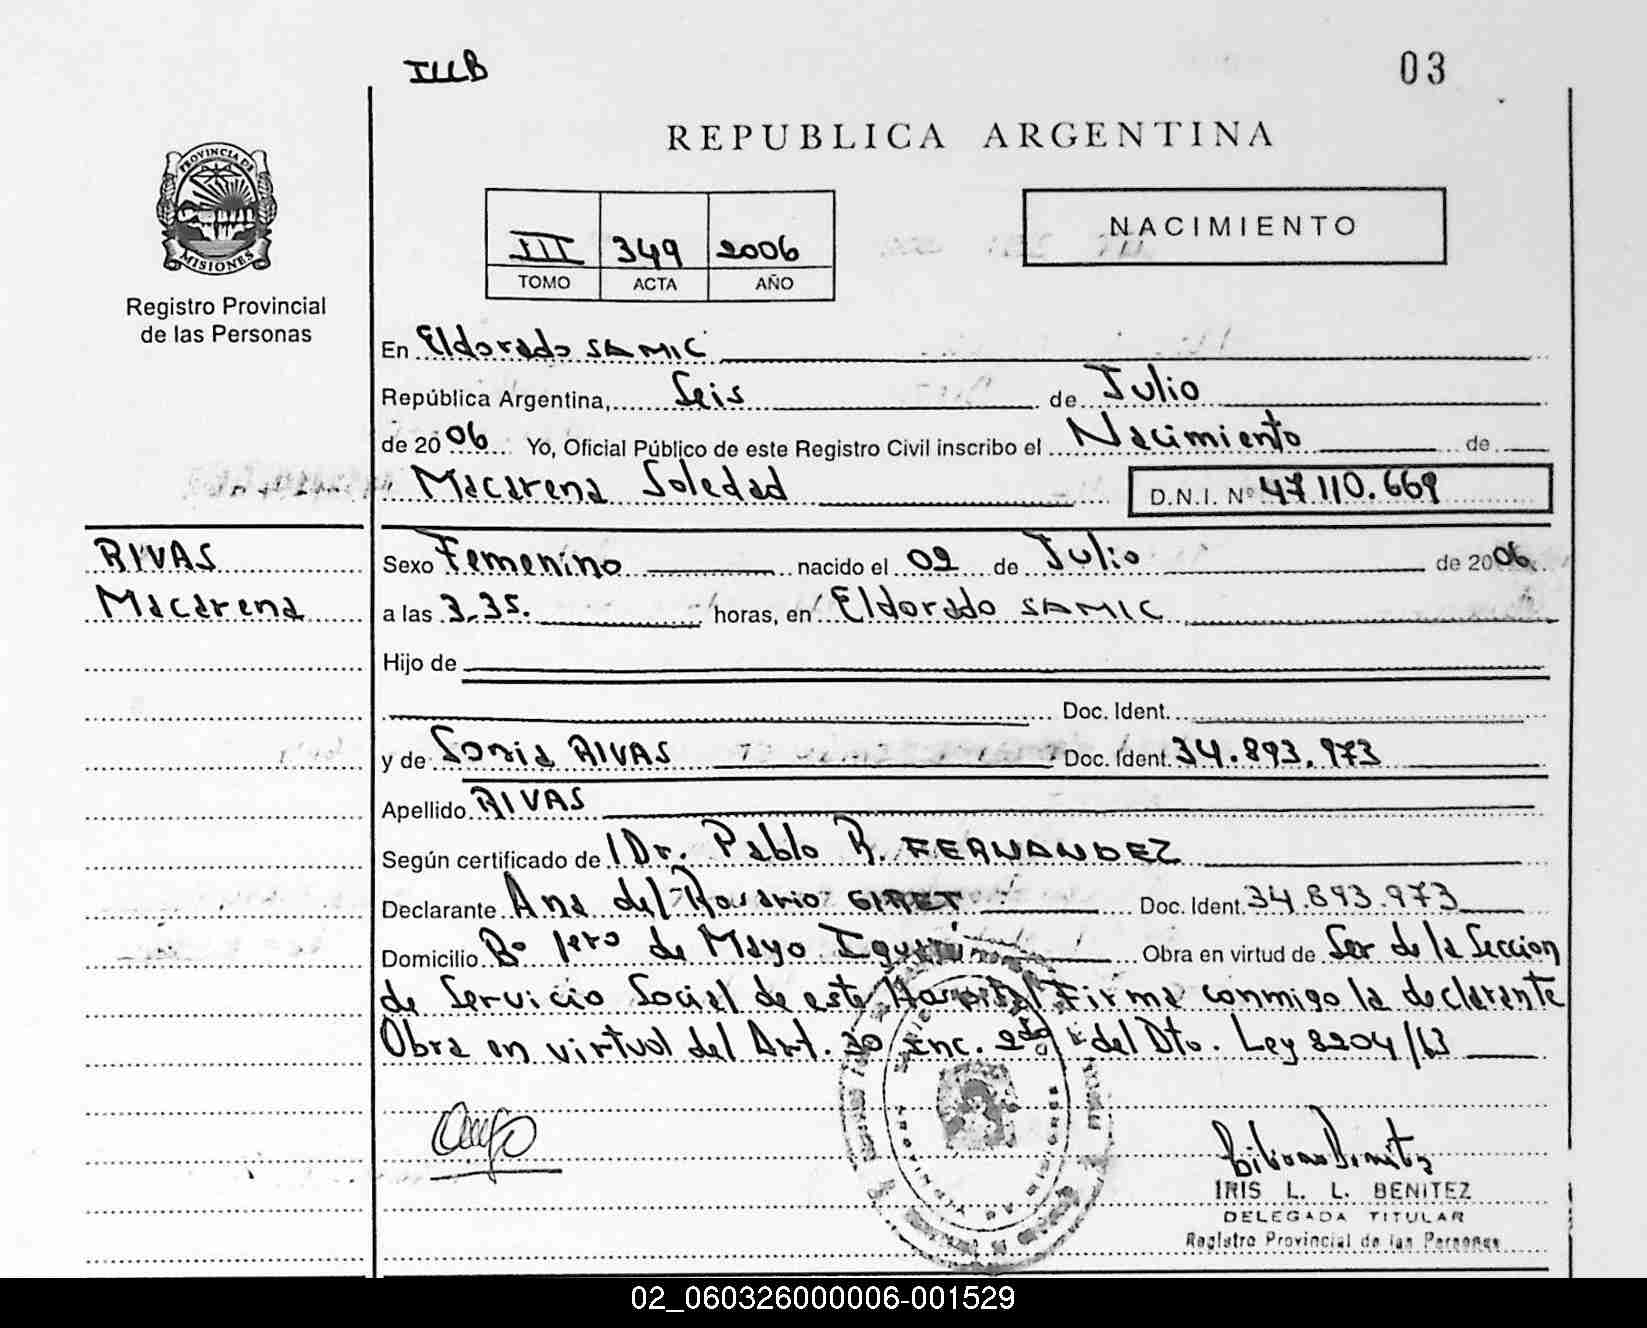 IIIB
03
REPUBLICA ARGENTINA
PROVINCIA DE
MISIONES
Registro Provincial
de las Personas
III 349 2006
TOMO ACTA AÑO
NACIMIENTO
En Eldorado SAMIC
República Argentina, Seis de Julio
de 20 06 Yo, Oficial Público de este Registro Civil inscribo el Nacimiento de
Macarena Soledad D.N.I. Nº 47 110.669
RIVAS
Macarena
Sexo Femenino nacido el 02 de Julio de 2006
a las 3.35. horas, en Eldorado SAMIC
Hijo de
Doc. Ident.
y de Sonia RIVAS Doc. Ident. 34.893.973
Apellido RIVAS
Según certificado de Dr. Pablo R. FERNANDEZ
Declarante Ana del Rosario Doc. Ident. 34.893.973
Domicilio Bº 1ero de Mayo Obra en virtud de Ser de la Seccion
de Servicio Social de este Hospital Firma conmigo la declarante
Obra en virtud del Art. 30 Inc. 2do del Dto. Ley 8204/63
IRIS L. L. BENITEZ
DELEGADA TITULAR
Registro Provincial de las Personas
02_060326000006-001529